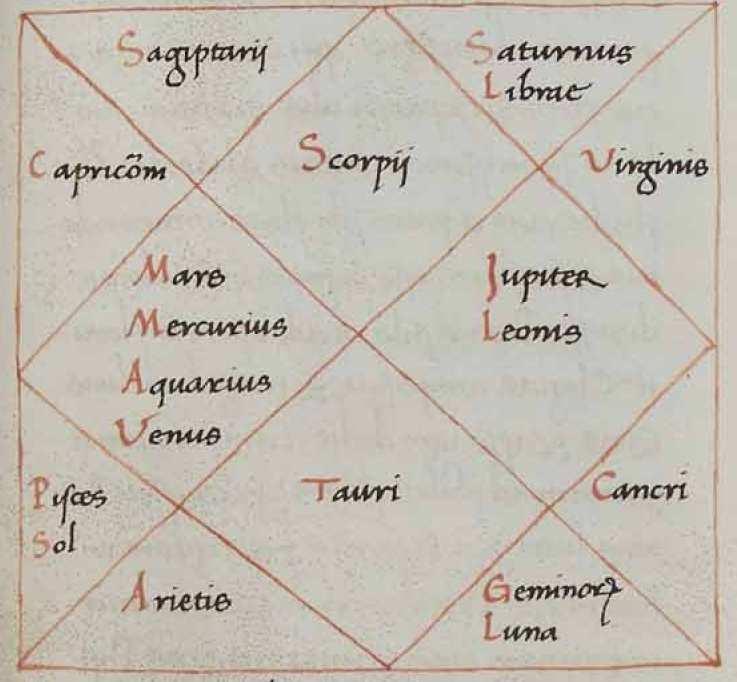 Sagiptarij
Saturnus
Librae
Capricõm
Scorpij
Virginis
Mars
Mercurius
Aquarius
Venus
Jupiter
Leonis
Pisces
Sol
Tauri
Cancri
Arietis
Geminorꝝ
Luna